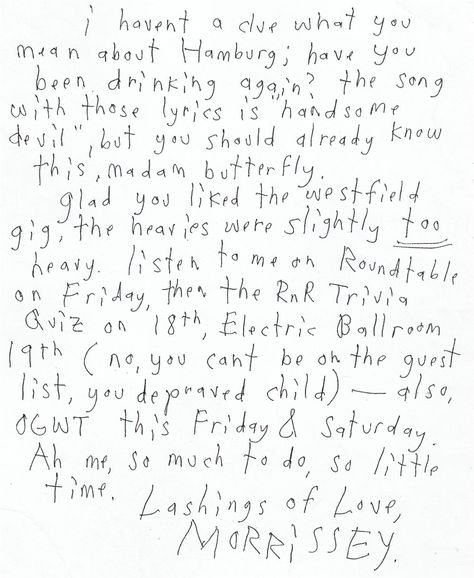 i havent a clue what you
mean about Hamburg; have you
been drinking again? the song
with those lyrics is "handsome
devil", but you should already know
this, madam butterfly.
glad you liked the westfield
gig, the heavies were slightly too
heavy. listen to me on Roundtable
on Friday, then the RnR Trivia
Quiz on 18th, Electric Ballroom
19th (no, you cant be on the guest
list, you depraved child) — also,
OGWT this Friday & Saturday.
Ah me, so much to do, so little
time.
Lashings of Love,
MORRiSSEY.